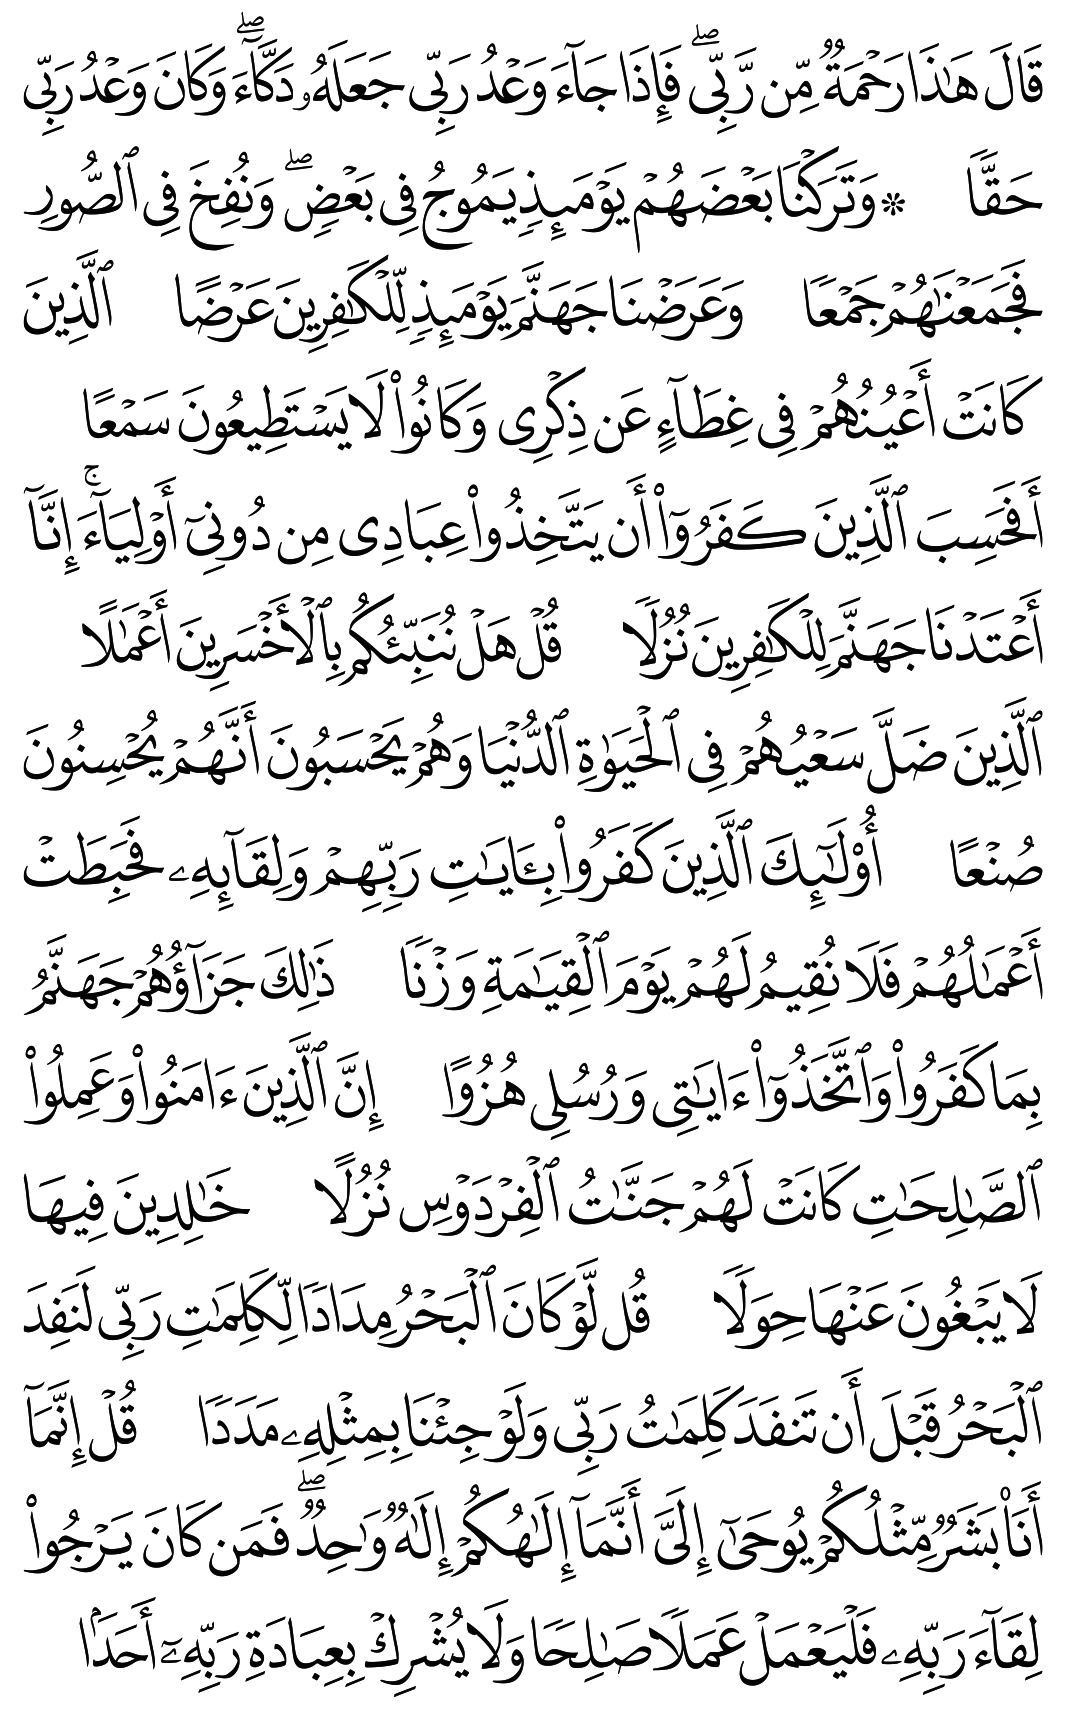 قَالَ هَٰذَا رَحْمَةٌ مِّن رَّبِّى ۖ فَإِذَا جَآءَ وَعْدُ رَبِّى جَعَلَهُۥ دَكَّآءَ ۖ وَكَانَ وَعْدُ رَبِّى
حَقًّا ۞ وَتَرَكْنَا بَعْضَهُمْ يَوْمَئِذٍ يَمُوجُ فِى بَعْضٍ ۖ وَنُفِخَ فِى ٱلصُّورِ
فَجَمَعْنَٰهُمْ جَمْعًا وَعَرَضْنَا جَهَنَّمَ يَوْمَئِذٍ لِّلْكَٰفِرِينَ عَرْضًا ٱلَّذِينَ
كَانَتْ أَعْيُنُهُمْ فِى غِطَآءٍ عَن ذِكْرِى وَكَانُوا۟ لَا يَسْتَطِيعُونَ سَمْعًا
أَفَحَسِبَ ٱلَّذِينَ كَفَرُوٓا۟ أَن يَتَّخِذُوا۟ عِبَادِى مِن دُونِىٓ أَوْلِيَآءَ ۚ إِنَّآ
أَعْتَدْنَا جَهَنَّمَ لِلْكَٰفِرِينَ نُزُلًا قُلْ هَلْ نُنَبِّئُكُم بِٱلْأَخْسَرِينَ أَعْمَٰلًا
ٱلَّذِينَ ضَلَّ سَعْيُهُمْ فِى ٱلْحَيَوٰةِ ٱلدُّنْيَا وَهُمْ يَحْسَبُونَ أَنَّهُمْ يُحْسِنُونَ
صُنْعًا أُو۟لَٰٓئِكَ ٱلَّذِينَ كَفَرُوا۟ بِـَٔايَٰتِ رَبِّهِمْ وَلِقَآئِهِۦ فَحَبِطَتْ
أَعْمَٰلُهُمْ فَلَا نُقِيمُ لَهُمْ يَوْمَ ٱلْقِيَٰمَةِ وَزْنًا ذَٰلِكَ جَزَآؤُهُمْ جَهَنَّمُ
بِمَا كَفَرُوا۟ وَٱتَّخَذُوٓا۟ ءَايَٰتِى وَرُسُلِى هُزُوًا إِنَّ ٱلَّذِينَ ءَامَنُوا۟ وَعَمِلُوا۟
ٱلصَّٰلِحَٰتِ كَانَتْ لَهُمْ جَنَّٰتُ ٱلْفِرْدَوْسِ نُزُلًا خَٰلِدِينَ فِيهَا
لَا يَبْغُونَ عَنْهَا حِوَلًا قُل لَّوْ كَانَ ٱلْبَحْرُ مِدَادًا لِّكَلِمَٰتِ رَبِّى لَنَفِدَ
ٱلْبَحْرُ قَبْلَ أَن تَنفَدَ كَلِمَٰتُ رَبِّى وَلَوْ جِئْنَا بِمِثْلِهِۦ مَدَدًا قُلْ إِنَّمَآ
أَنَا۠ بَشَرٌ مِّثْلُكُمْ يُوحَىٰٓ إِلَىَّ أَنَّمَآ إِلَٰهُكُمْ إِلَٰهٌ وَٰحِدٌ ۖ فَمَن كَانَ يَرْجُوا۟
لِقَآءَ رَبِّهِۦ فَلْيَعْمَلْ عَمَلًا صَٰلِحًا وَلَا يُشْرِكْ بِعِبَادَةِ رَبِّهِۦٓ أَحَدًۢا